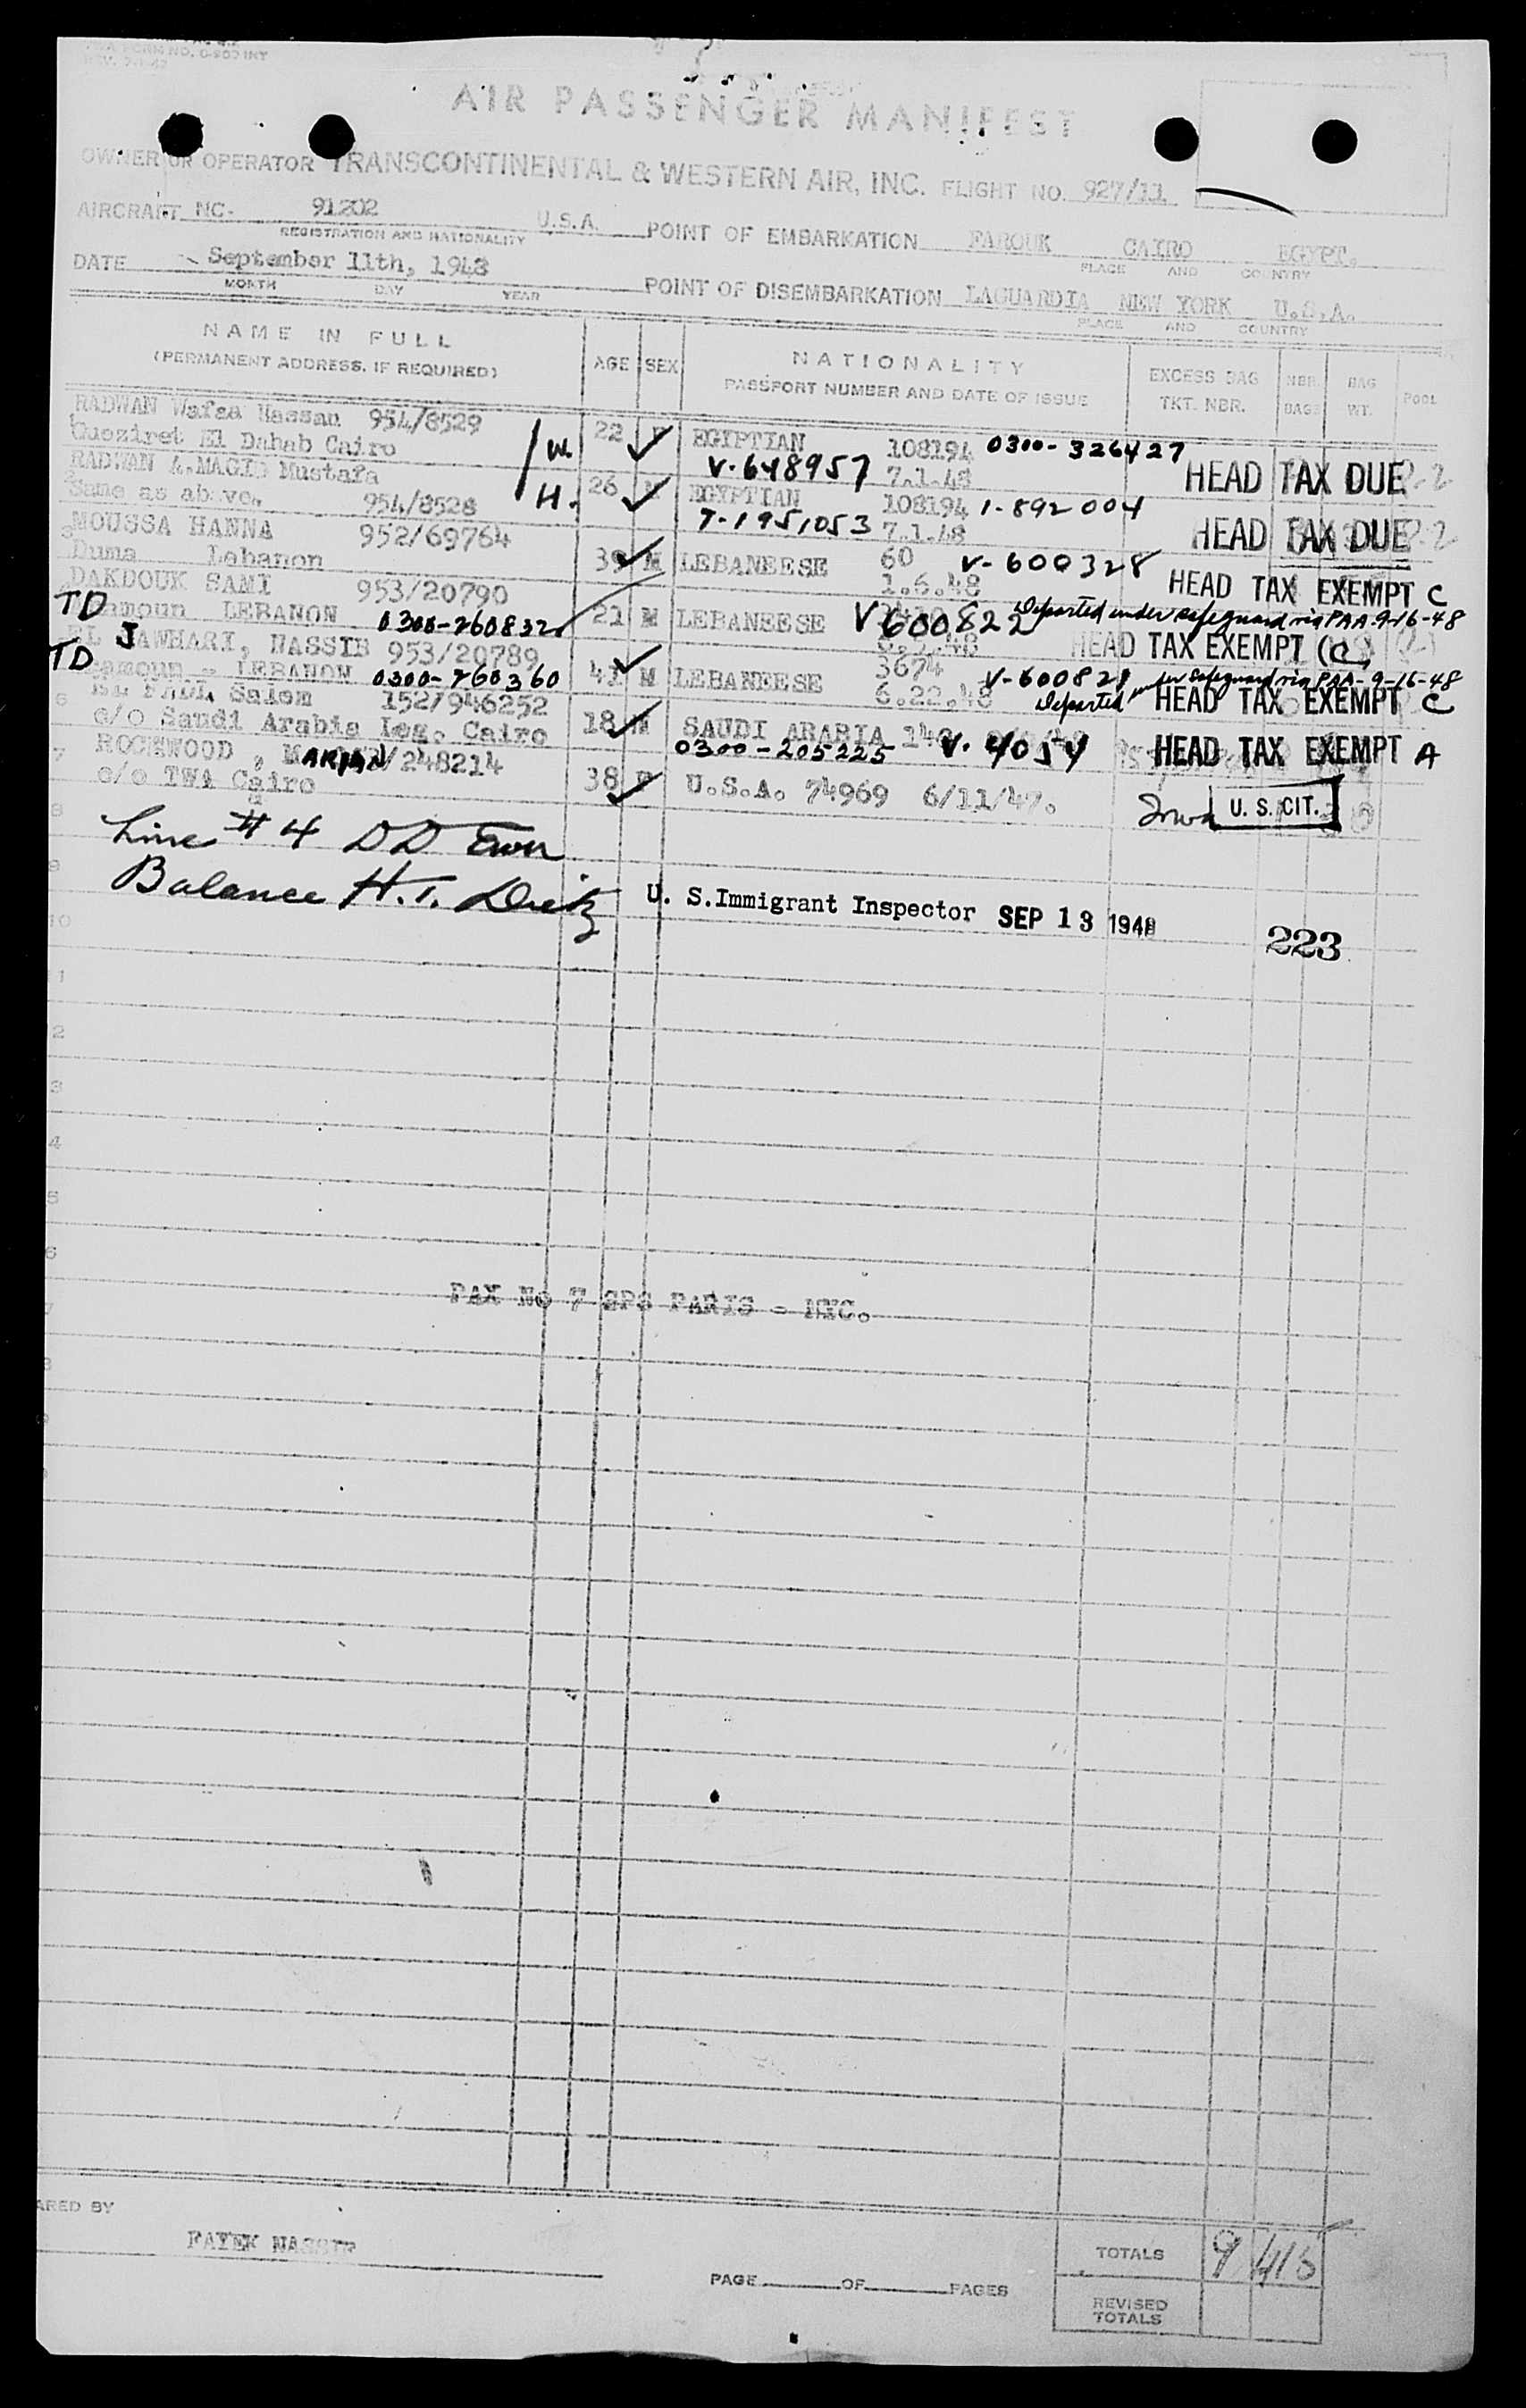 AIR PASSENGER MANIFEST
OWNER OR OPERATOR TRANSCONTINENTAL & WESTERN AIR, INC. FLIGHT NO. 927/11
AIRCRAFT NC- 91202 U.S.A. POINT OF EMBARKATION FAROUK CAIRO EGYPT.
REGISTRATION AND NATIONALITY PLACE AND COUNTRY
DATE September 11th, 1948 POINT OF DISEMBARKATION LAGUARDIA NEW YORK U.S.A.
MONTH DAY YEAR PLACE AND COUNTRY
NAME IN FULL AGE SEX NATIONALITY EXCESS BAG NBR. BAG POOL
(PERMANENT ADDRESS, IF REQUIRED) PASSPORT NUMBER AND DATE OF ISSUE TKT. NBR. BAGS WT.
RADWAN Wafaa Hassan 954/8529 22 F EGYPTIAN 108194 0300-326427
Gueziret El Dahab Cairo W. V-648957 7.1.48 HEAD TAX DUE
RADWAN A.MAGID Mustafa 26 M EGYPTIAN 108194 1-892004
Same as above. 954/8528 H. 7-1951053 7.1.48 HEAD TAX DUE
MOUSSA HANNA 952/69764 39 M LEBANEESE 60 V-600328
Duma Lebanon 1.6.48 HEAD TAX EXEMPT C
DAKDOUK SAMI 953/20790 21 M LEBANEESE V600822 Departed under safeguard via PAA 9-16-48
TD LEBANON 0300-260832 HEAD TAX EXEMPT (C)
EL JAWHARI, HASSIB 953/20789 M LEBANEESE 3674 V-600821 Departed under safeguard via PAA-9-16-48
TD LEBANON 0300-260360 6.22.48 HEAD TAX EXEMPT C
6 Salem 152/946252 18 M SAUDI ARABIA V-4054 HEAD TAX EXEMPT A
c/o Saudi Arabia Leg. Cairo 0300-205225
7 ROCKWOOD, MARIAN 248214 38 F U.S.A. 74969 6/11/47.
c/o TWA Cairo U. S. CIT.
8 Line #4 DD
9 Balance H.T. U. S.Immigrant Inspector SEP 13 1948
10 223
1
2
3
4
5
6
PAX No 7 SPS PARIS - NYC.
ARED BY
FAYEK
TOTALS 9
PAGE OF PAGES
REVISED
TOTALS